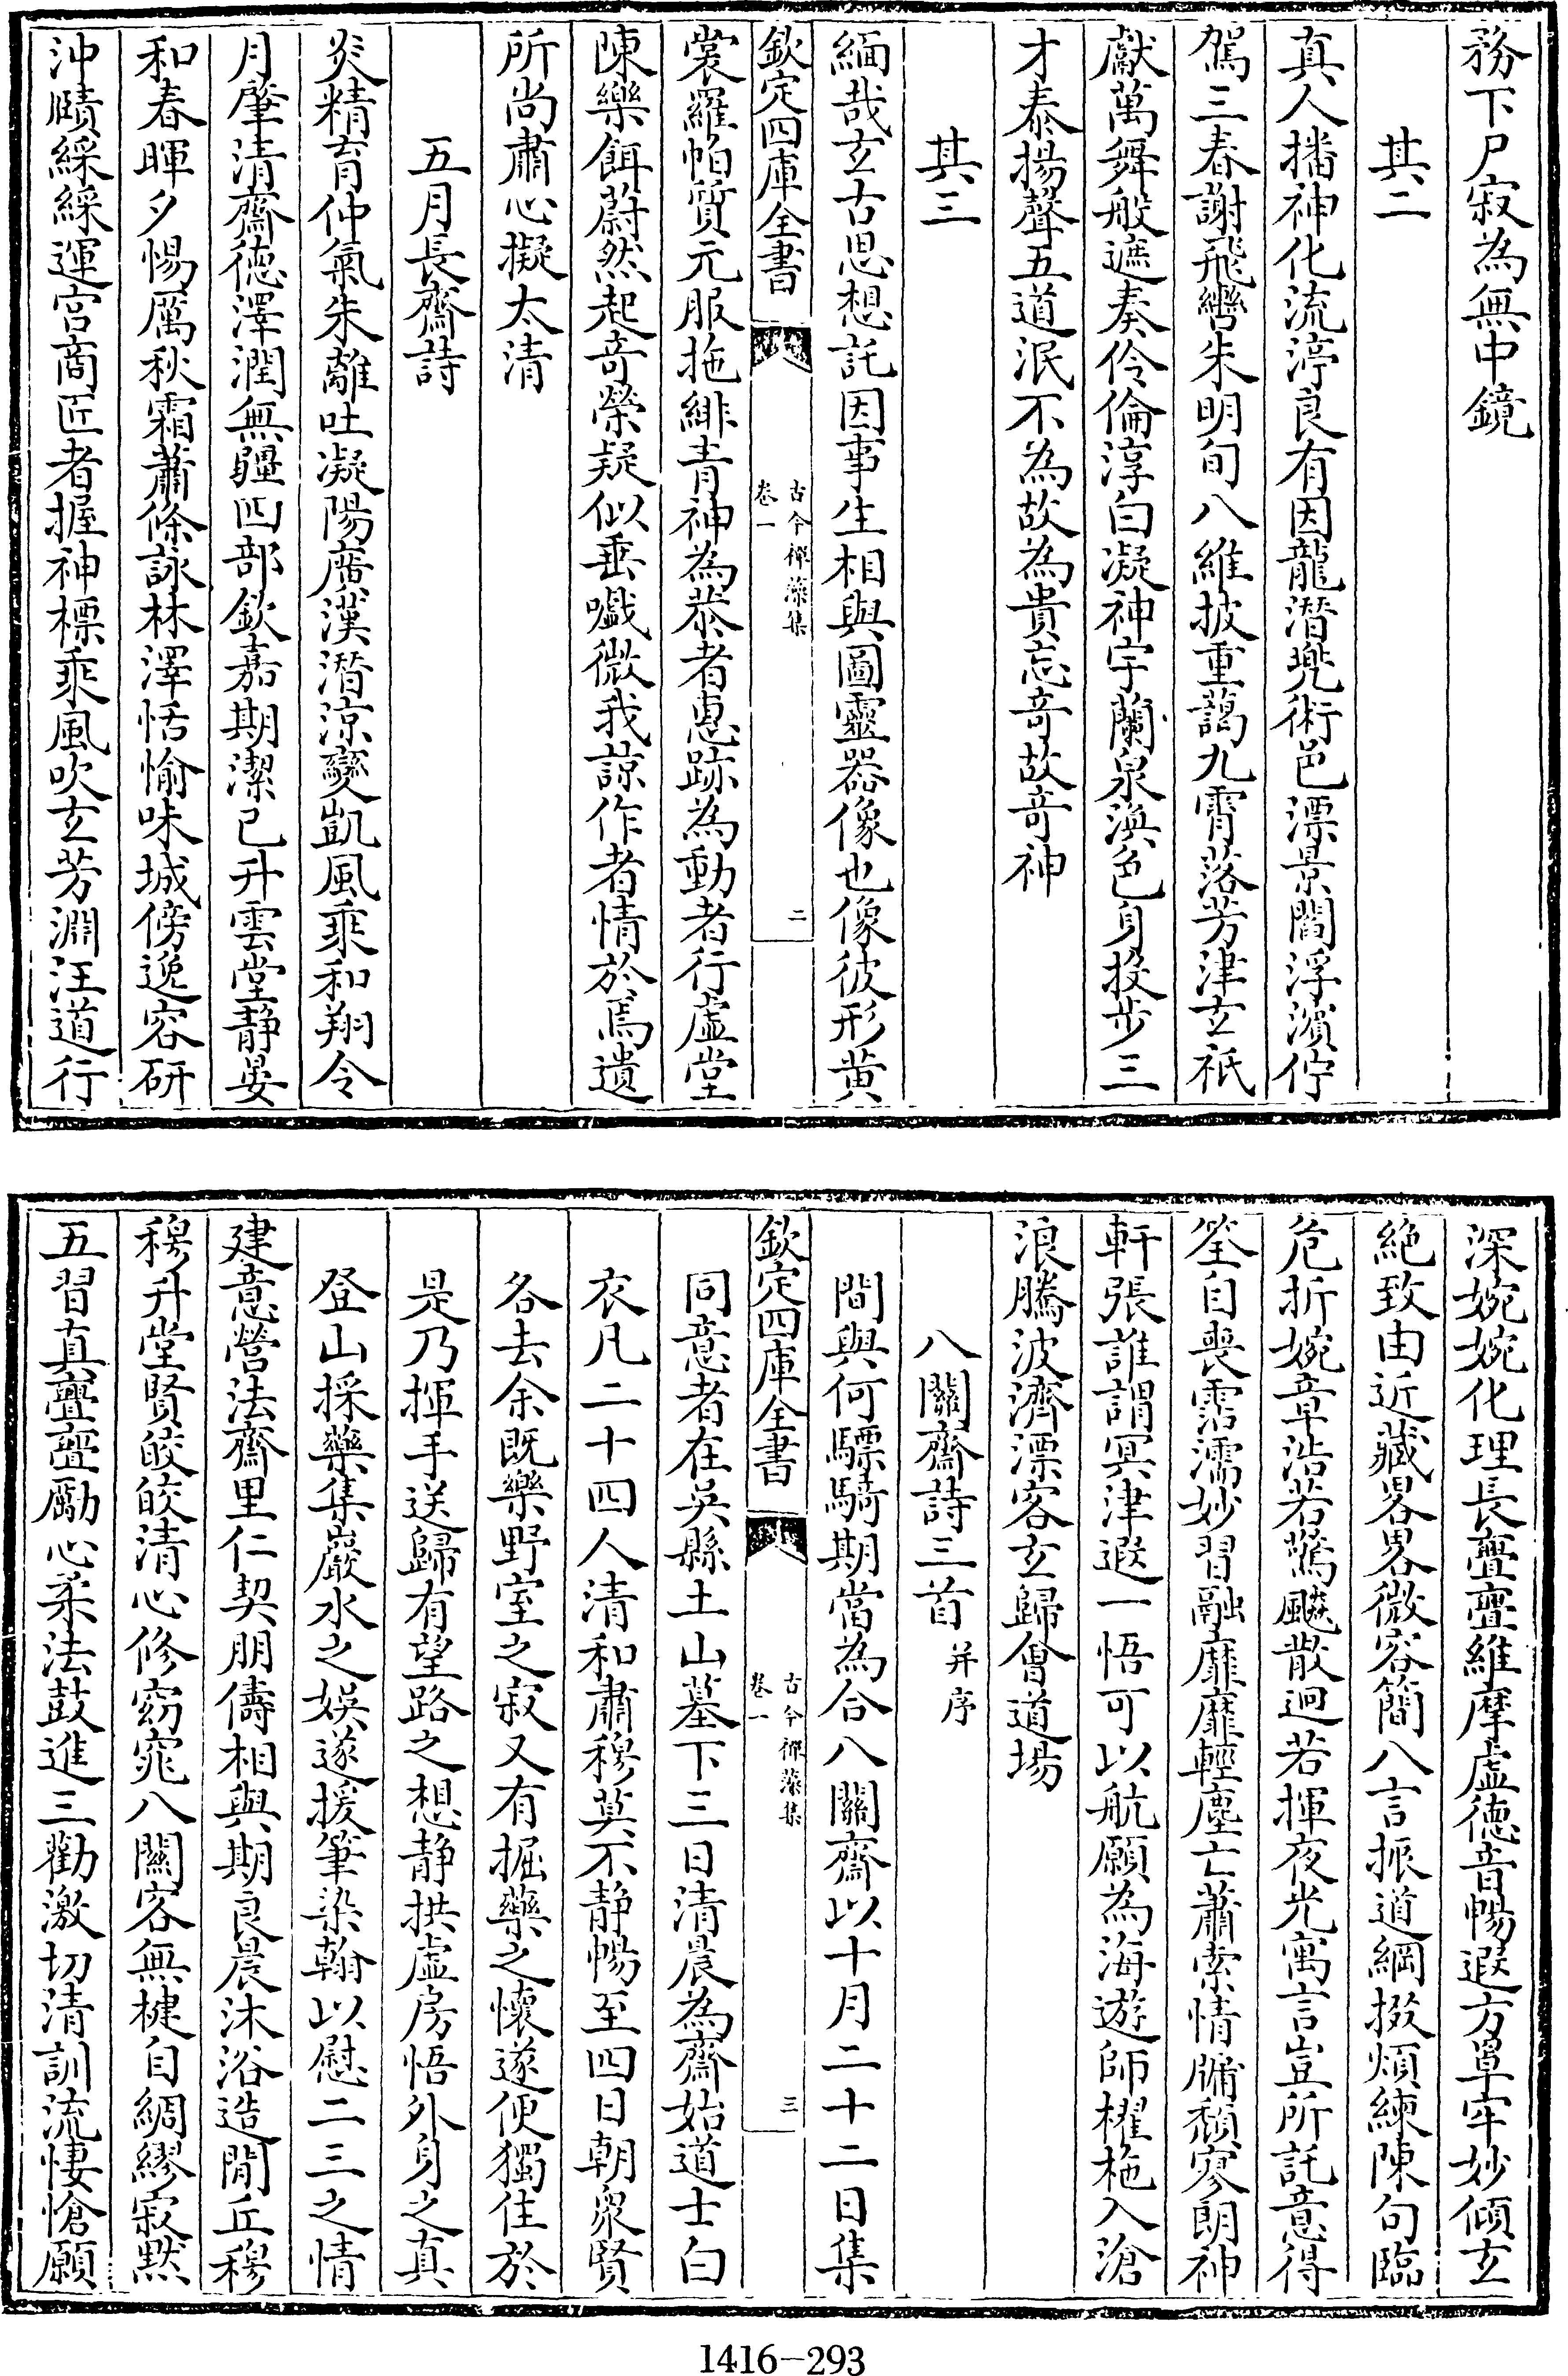 務下尸寂為無中鏡
其二
真人播神化流渟良有因龍潛兜術邑漂景閻浮濱佇
駕三春謝飛轡朱明旬八維披重藹九霄落芳津玄祇
獻萬舞般遮奏伶倫淳白凝神宇蘭泉渙色身投步三
才泰揚聲五道泯不為故為貴忘奇故奇神
其三
緬哉玄古思想託因事生相與圖靈器像也像彼形黄
欽定四庫全書
古今禪藻集
卷一
二
裳羅帕質元服拖緋青神為恭者惠跡為動者行虛堂
陳樂餌蔚然起奇榮疑似垂嚱微我諒作者情於焉遺
所尚肅心擬太清
五月長齋詩
炎精育仲氣朱離吐凝陽廣漢潛涼變凱風乘和翔令
月肇清齋德澤潤無疆四部欽嘉期潔已升雲堂静晏
和春暉夕惕厲秋霜蕭條詠林澤恬愉味城傍逸容研
沖賾綵綵運宮商匠者握神標乘風吹玄芳淵汪道行
深婉婉化理長亹亹維摩虛德音暢遐方罩牢妙傾玄
絶致由近藏畧畧微容簡八言振道綱掇煩練陳句臨
危折婉章浩若驚飈散迥若揮夜光寓言豈所託意得
筌自喪霑濡妙習融靡靡輕塵亡蕭索情牖頹寥朗神
軒張誰謂冥津遐一悟可以航願為海遊師櫂柂入滄
浪騰波濟漂客玄歸會道場
八關齋詩三首并序
間與何驃騎期當為合八關齋以十月二十二日集
欽定四庫全書
古今禪藻集
卷一
三
同意者在吳縣土山墓下三日清晨為齋始道士白
衣凡二十四人清和肅穆莫不静暢至四日朝衆賢
各去余既樂野室之寂又有掘藥之懷遂便獨住於
是乃揮手送歸有望路之想静拱虛房悟外身之真
登山採藥集巖水之娯遂援筆染翰以慰二三之情
建意營法齋里仁契朋儔相與期良晨沐浴造閒丘穆
穆升堂賢皎皎清心修窈窕八關客無楗自綢繆寂默
五習真亹亹勵心柔法鼓進三勸激切清訓流悽愴願
1416-293